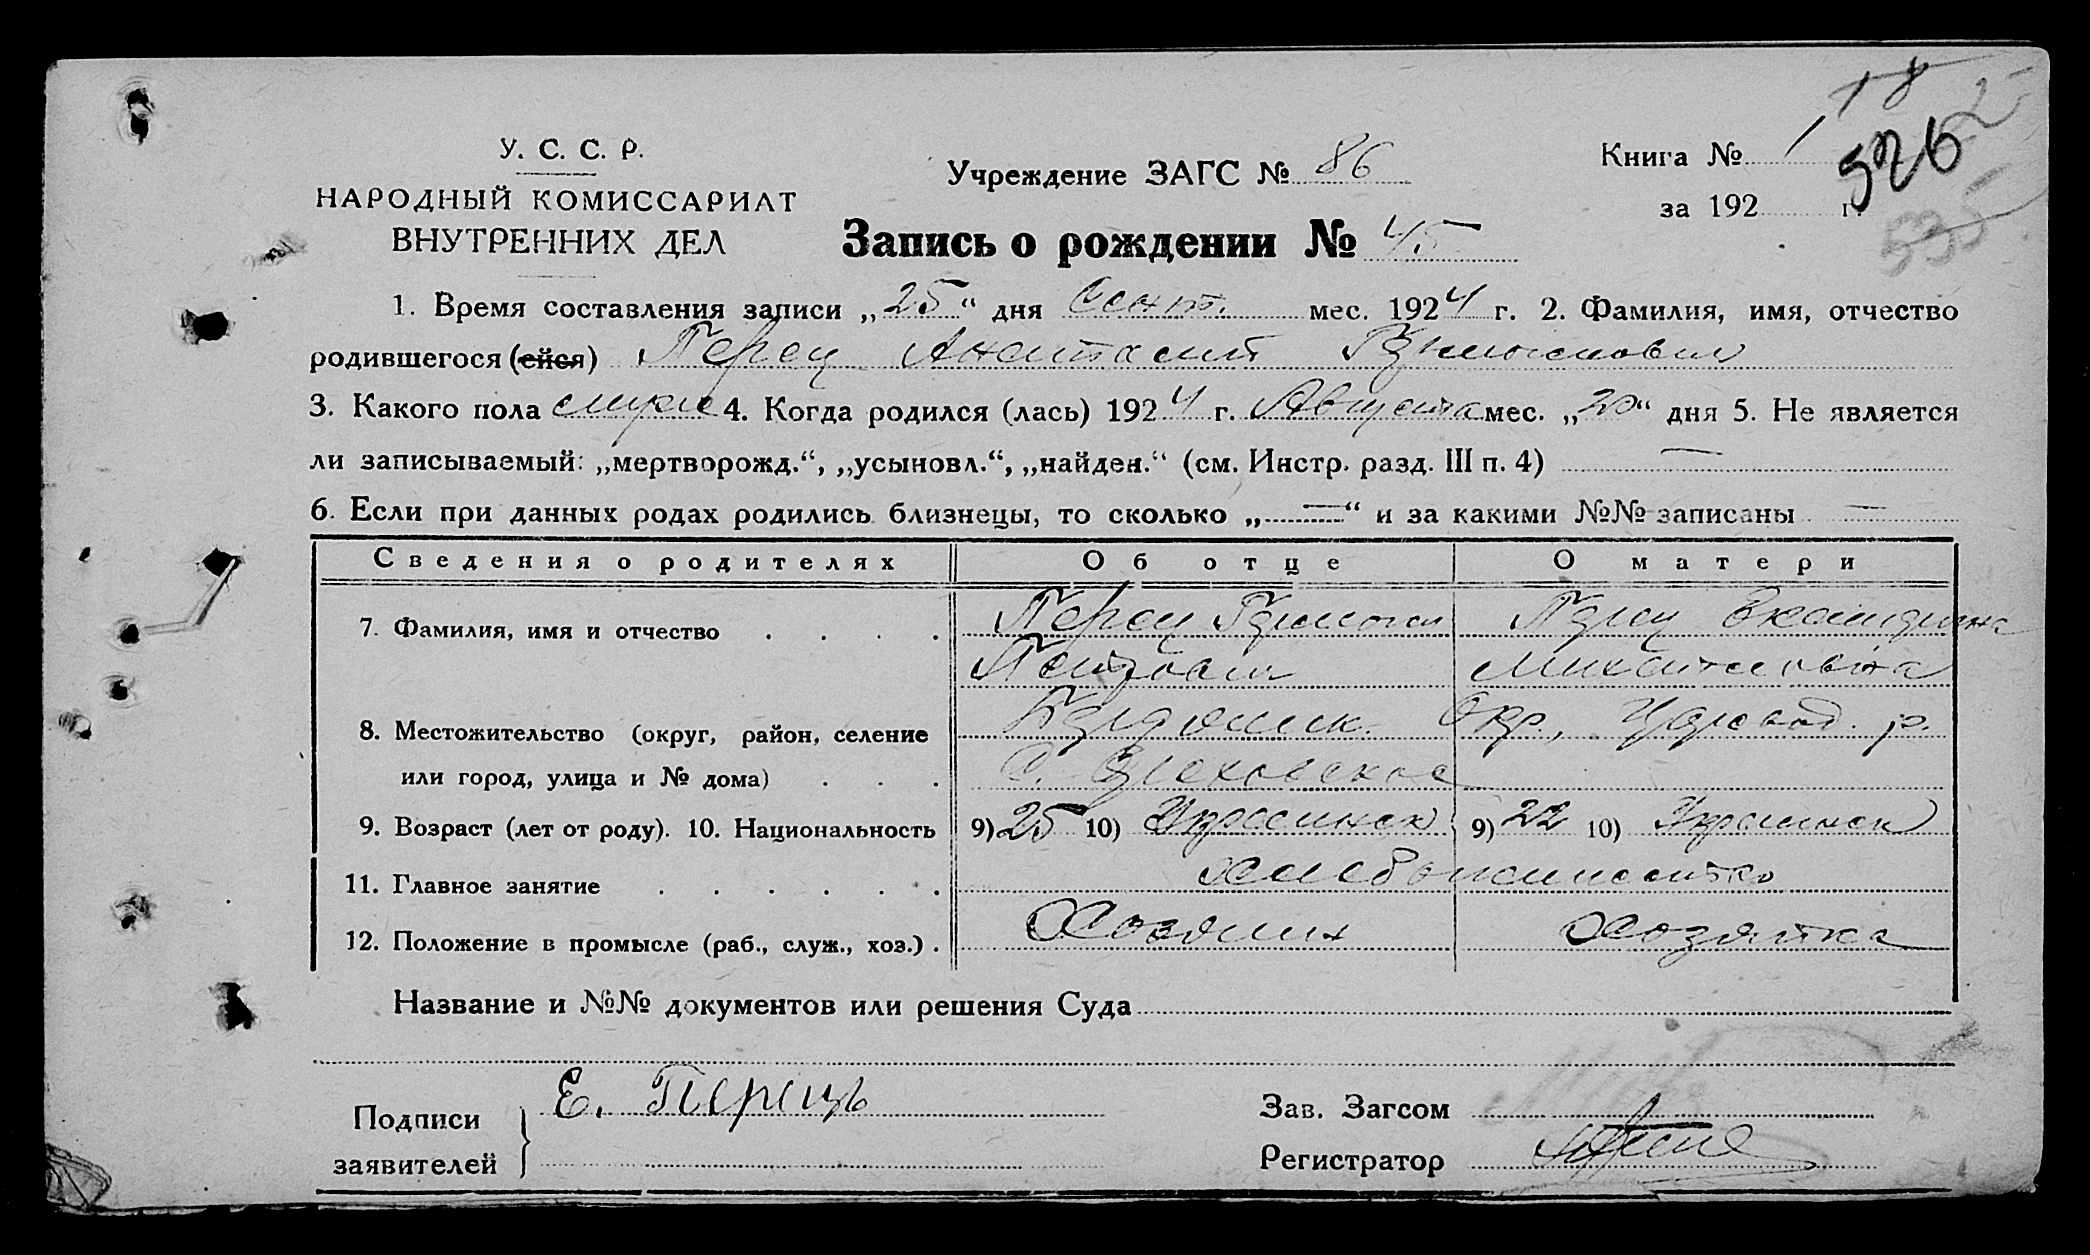 18
2
526
535
У. С. С. Р.
НАРОДНЫЙ КОМИССАРИАТ
ВНУТРЕННИХ ДЕЛ
Учреждение ЗАГС № 86
Книга № 1
за 192 г.
Запись о рождении № 45
1. Время составления записи „25“ дня Сент. мес. 1924 г. 2. Фамилия, имя, отчество
родившегося (ейся) Перец Анатолий
3. Какого пола муж 4. Когда родился (лась) 1924 г. Августа мес. „20“ дня 5. Не является
ли записываемый: „мертворожд.“, „усыновл.“, „найден.“ (см. Инстр. разд. III п. 4) —
6. Если при данных родах родились близнецы, то сколько „—“ и за какими №№ записаны —
Сведения о родителях Об отце О матери
7. Фамилия, имя и отчество . . . . Перец Перец Екатерина
Петрович Михайловна
8. Местожительство (округ, район, селение Бердянск. Окр., Царевод. р.
или город, улица и № дома) . . . С.
9. Возраст (лет от роду). 10. Национальность 9) 25 10) Украинск 9) 22 10) Украинск
11. Главное занятие . . . . . . хлебопашество
12. Положение в промысле (раб., служ., хоз.) . Хозяин хозяйка
Название и №№ документов или решения Суда
Подписи
заявителей
Е. Перець
Зав. Загсом
Регистратор